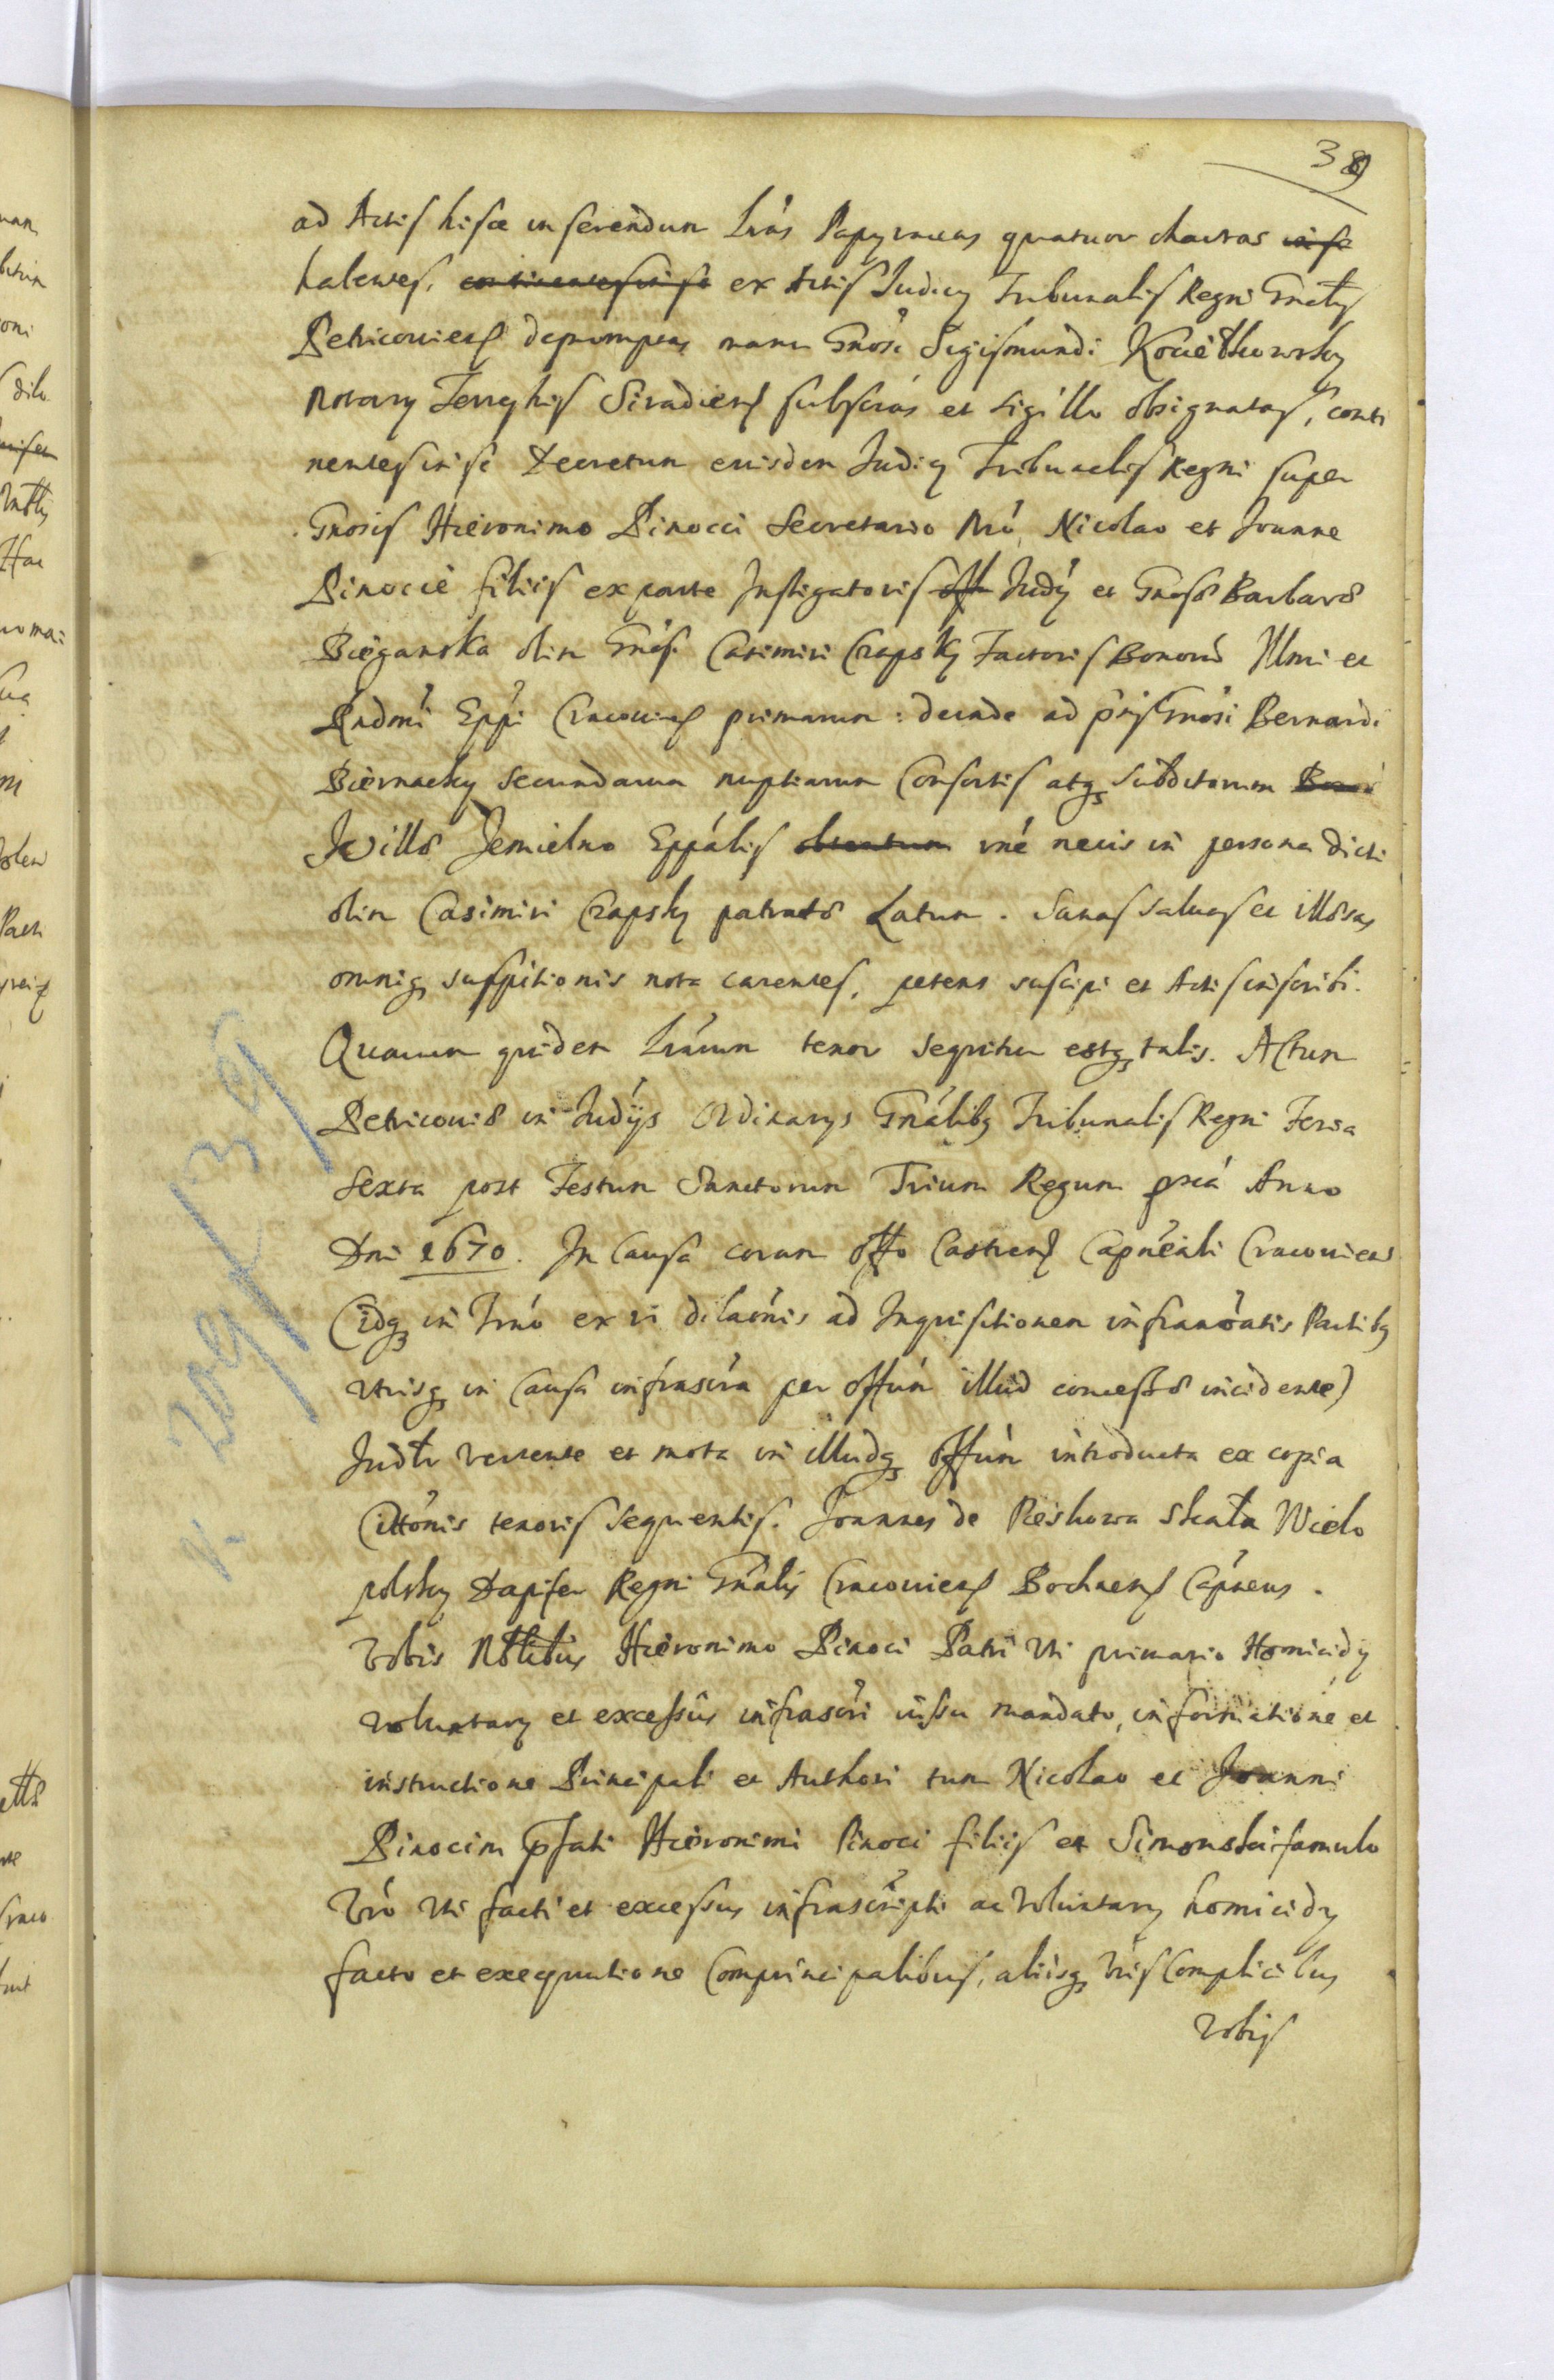 389
ad Actis hisce inserendum Lrás Papyraceas quatuor chartas in se
habentes, continentes in se ex Actis Judicy Tribunalis Regni Gnalis
Petricoviens depromptas manu Gnosi Sigismundi
Notary Terrestris Siradiens subscras et sigillo obsignatas, conti
nentes in se Decretum eiusdem Judicy Tribunalis Regni super
Gnosis Hieronimo Pinocci Secretario Nró, Nicolao et Joanne
Pinocci filiis ex parte Instigatoris Judy et Gnosæ Barbaræ
Bieganska olim Gnosi Casimiri Czapsky Factoris Bonorú Illmi et
Rndmi Eppi Cracoviens primarum: deinde ad pñs Gnosi Bernardi
Biernacky secundarum nuptiarum Consortis atq subditorum Bonorú
Villæ Jemielno Eppális rné necis in persona dicti
olim Casimiri Czapsky patratæ Latum. Sanas salvas et illæsas
omniq suspitionis nota carentes, petens suscipi et Actis inscribi.
Quarum quidem Lrárum tenor sequitur estq talis. Actum
Petricoviæ in Judijs Ordinarys Gnálibq Tribunalis Regni Feria
sexta post Festum Sanctorum Trium Regum pxiá Anno
Dni 1670. In Causa coram Offo Castrens Capneáli Cracoviens
(idq in Trnó ex vi dilaónis ad Inquisitionem infranoátis Partibq
utrisq in Causa infrascra per Offún illud concessæ incidente)
Judtr vertente et mota in illudq Offún introducta ex copia
Cittónis tenoris sequentis. Joannes de Pieskowa Skała Wielo
polsky Dapifer Regni Gnális Cracoviens Bochnens Cápneus.
Vobis Nblibus Hieronimo Pinoci Patri uti primario Homicidy
voluntary et excessus infrascri iussu mandato, informatióne et
instructione Principali et Authori tum Nicolao et Joanni
Pinocim pfati Hieronimi Pinoci filiis et Simonski famulo
Vró uti facti et excessus infrascripti ac voluntary homicidy
facto et exequutione Comprincipalibus, aliisq Vris Complicibus
Vobis